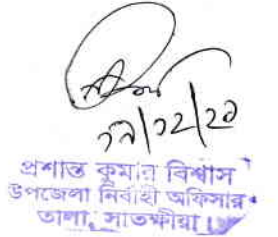 ২৭/১২/২১
প্রশান্ত কুমার বিশ্বাস
উপজেলা নির্বাহী অফিসার
তালা, সাতক্ষীরা।